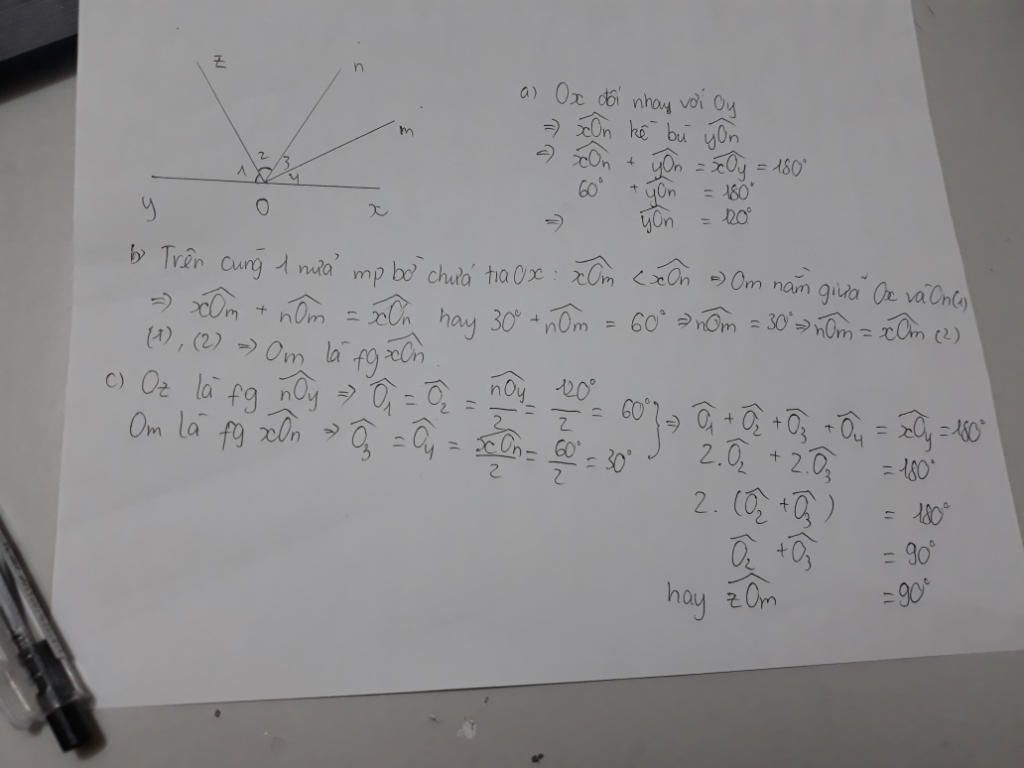 z
n
m
1 2 3 4
y O x
a) Ox đối nhau với Oy
=> xÔn kề bù yÔn
=> xÔn + yÔn = xÔy = 180°
60° + yÔn = 180°
=> yÔn = 120°
b) Trên cùng 1 nửa mp bờ chứa tia Ox : xÔm < xÔn => Om nằm giữa Ox và On (1)
=> xÔm + nÔm = xÔn hay 30° + nÔm = 60° => nÔm = 30° => nÔm = xÔm (2)
(1), (2) => Om là fg xÔn.
c) Oz là fg nÔy => Ô₁ = Ô₂ = nÔy/2 = 120°/2 = 60°
Om là fg xÔn => Ô₃ = Ô₄ = xÔn/2 = 60°/2 = 30°
} => Ô₁ + Ô₂ + Ô₃ + Ô₄ = xÔy = 180°
2.Ô₂ + 2.Ô₃ = 180°
2. (Ô₂ + Ô₃) = 180°
Ô₂ + Ô₃ = 90°
hay zÔm = 90°